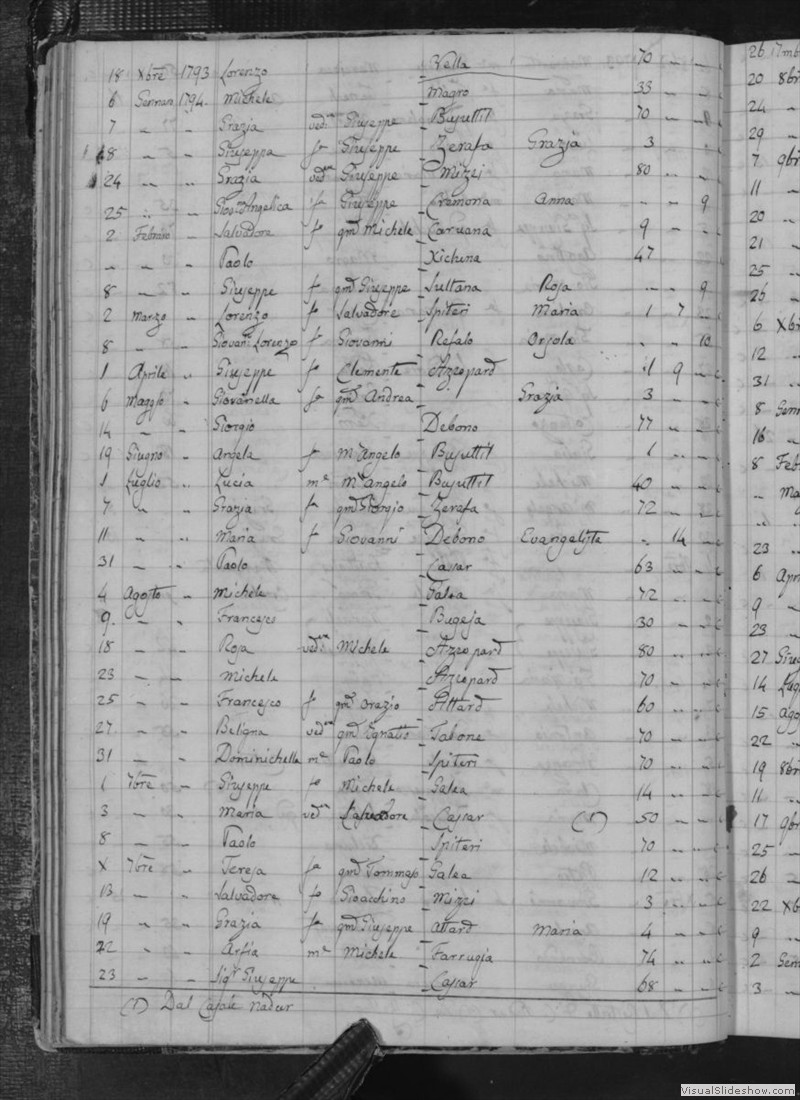 18 Xbre 1793 Lorenzo Vella 70 " "
6 Gennaro 1794. Michele Magro 33 " "
7 " " Grazia ved. Giuseppe Bujuttil 70 " "
8 " " Giuseppa fa Giuseppe Zerafa Grazia 3
24 " " Grazia ved. Giuseppe Mizzi 80 " "
25 " " Gios. Angelica fa Giuseppe Cremona Anna " " 9
2 Febraro " Salvadore fo qm Michele Caruana 9 " "
" " " Paolo Xichuna 47
8 " " Giuseppe f qm Giuseppe Sultana Rosa " " 9
2 Marzo " Lorenzo fo Salvadore Spiteri Maria 1 7 "
8 " " Giovani Lorenzo f Giovanni Refalo Orsola " " 10
1 Aprile " Giuseppe fo Clemente Azzopard 11 9 "
6 Maggio " Giovanella fa qm Andrea Grazia 3 " "
14 " " Giorgio Debono 77 " "
19 Giugno " Angela f M. Angelo Bujuttil 1 " "
1 Luglio " Lucia me M. Angelo Bujuttil 40 " "
7 " " Grazia fa qm Giorgio Zerafa 72 " "
11 " " Maria fa Giovanni Debono Evangelista " 14 "
31 " " Paolo Cassar 63 " "
4 Agosto " Michele Galea 72 " "
9. " " Francesco Bugeja 30 " "
18 " " Rosa ved. Michele Azzopard 80 " "
23 " " Michele Azzopard 70 " "
25 " " Francesco f qm Orazio Attard 60 " "
27 " " Betigna ved. qm Egnatio Tabone 70 " "
31 " " Dominichella me Paolo Spiteri 70 " "
1 7bre " Giuseppe fo Michele Galea 14 " "
3 " " Maria ved. Salvadore Cassar (1) 50 " "
8 " " Paolo Spiteri 70 " "
X 7bre " Teresa fa qm Tommaso Galea 12 " "
13 " " Salvadore fo Gioacchino Mizzi 3 " "
19 " " Grazia fa qm Giuseppe Attard Maria 4 " "
22 " " me Michele Farrugia 74 " "
23 " " Sigr Giuseppe Cassar 68 " "
(1) Dal Casale Nadur
26 17mb
20 8br
24 "
29 "
7 9br
11 "
20 "
21 "
25 "
26 "
6 Xbr
12 "
31 "
8 Genn
16 "
8 Feb
" Ma
" "
23 "
6 Apri
9 "
23 "
27 Giu
14 Lug
15 Ago
22 "
19 8br
11 "
17 9br
25 "
26 "
22 Xb
9 "
2 Genn
3 "
VisualSlideshow.com